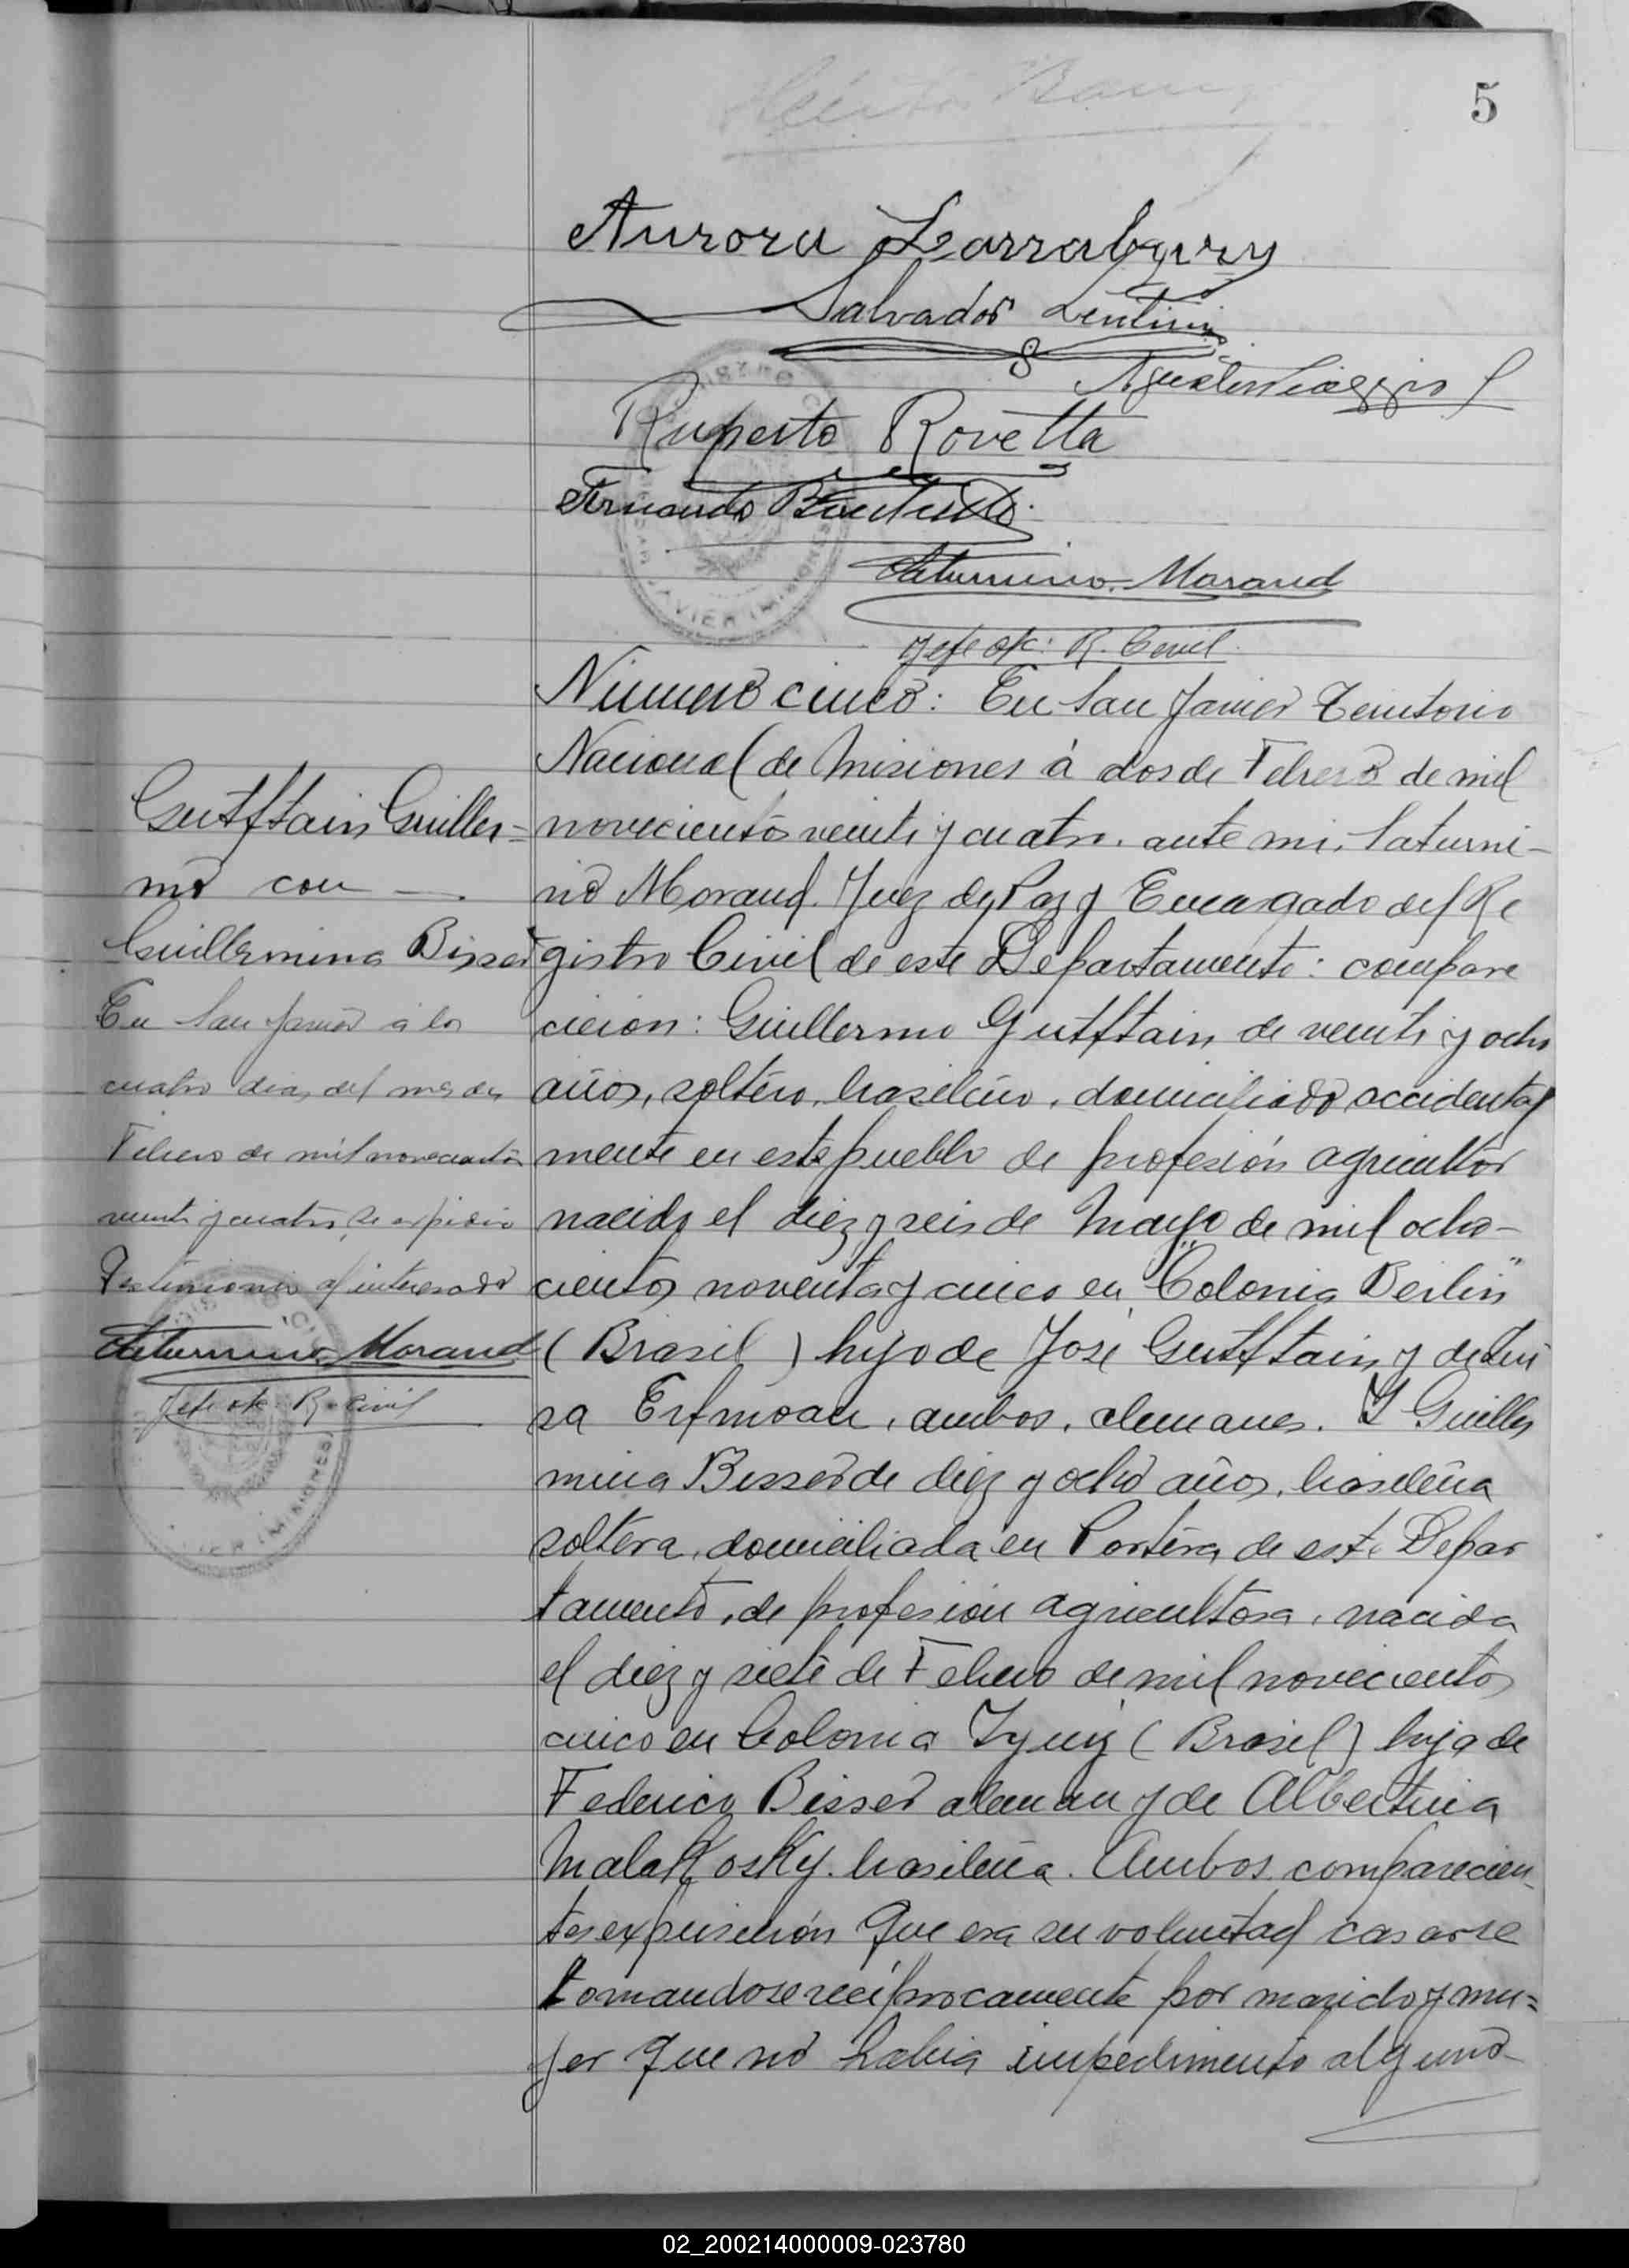 5
Aurora Larraburry
Salvador Lentini
Ruperto Rovetta
Fernando
Saturnino Morand
Jefe of: R. Civil
Número cinco: En San Javier Territorio
Nacional de Misiones á dos de Febrero de mil
novecientos veinti y cuatro. ante mi, Saturni-
no Morand. Juez de Paz y Encargado del Re
gistro Civil de este Departamento: compare
cieron: Guillermo Gutftain, de veinti y ocho
años, soltero, brasileño, domiciliado accidental
mente en este pueblo de profesión agricultor
nacido el diez y seis de Mayo de mil ocho-
cientos noventa y cinco en "Colonia Berlin"
(Brasil) hijo de José Gutftain y de Lui
sa Erfmoan, ambos, alemanes. Y Guiller
mina Bisser de diez y ocho años, brasileña
soltera, domiciliada en Portera de este Depar
tamento, de profesión agricultora, nacida
el diez y siete de Febrero de mil novecientos
cinco en Colonia Yyuiy (Brasil) hija de
Federico Bisser aleman y de Albertina
Malakosky. brasileña. Ambos comparecien-
tes expusieron que era su voluntad casarse
tomandose reciprocamente por marido y mu=
jer que no habia impedimento alguno
Gutftain Guiller=
mo con
Guillermina Bisser
En San Javier á los
cuatro dias del mes de
Febrero de mil novecientos
veinti y cuatro, se expidio
Testimonio al interesado
Saturnino Morand
Jefe of: R. Civil
02_200214000009-023780